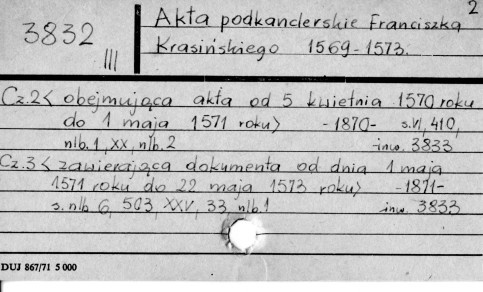 2
3832
III
Akta podkanclerskie Franciszka
Krasińskiego 1569-1573.
Cz.2 < obejmująca akta od 5 kwietnia 1570 roku
do 1 maja 1571 roku> -1870- s.VI, 410,
nlb.1, XX, nlb.2 inw. 3833
Cz.3 < zawierająca dokumenta od dnia 1 maja
1571 roku do 22 maja 1573 roku> -1871-
s. nlb 6, 503, XXV, 33, nlb.1 inw. 3833
DUJ 867/71 5 000